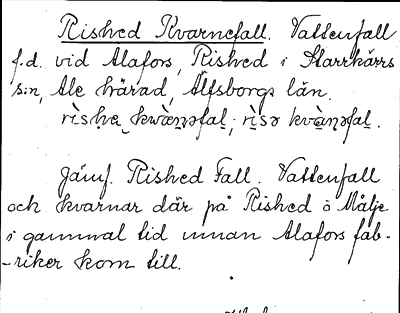 Rished Kvarnefall. Vattenfall
f.d. vid Alafors, Rished i Starrkärrs
s:n, Ale härad, Älfsborgs län.
rìshe̥ kwæ̀ṇəfal; rìsə kvàṇəfal.
Jämf. Rished Fall. Vattenfall
och kvarnar där på Rished ö Målje
i gammal tid innan Alafors fab-
-riker kom till.